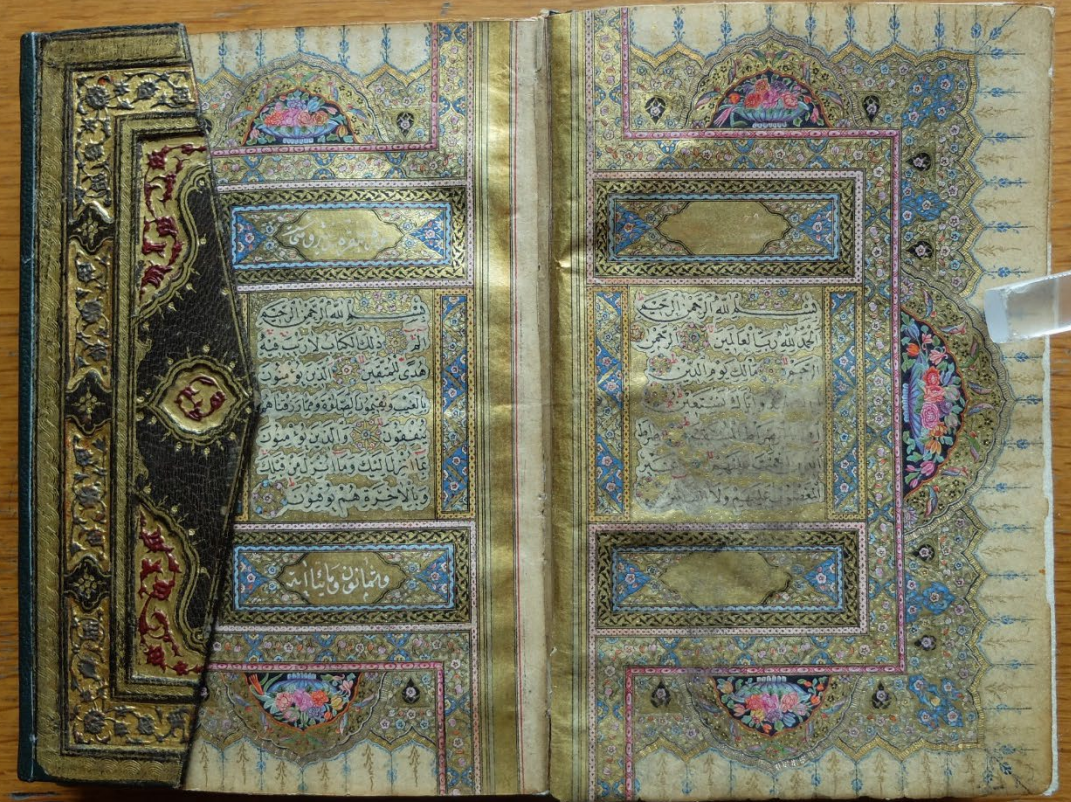 بسم الله الرحمن الرحيم
الحمد لله رب العالمين الرحمن
الرحيم مالك يوم الدين
اياك نستعين
اهدنا الصراط المستقيم صراط
الذين انعمت عليهم غير
المغضوب عليهم ولا
بسم الله الرحمن الرحيم
الم ذلك الكتاب لا ريب فيه
هدى للمتقين الذين يؤمنون
بالغيب ويقيمون الصلوة ومما رزقناهم
ينفقون والذين يؤمنون
بما انزل اليك وما انزل من قبلك
وبالاخرة هم يوقنون
وثمانون ومايتا اية